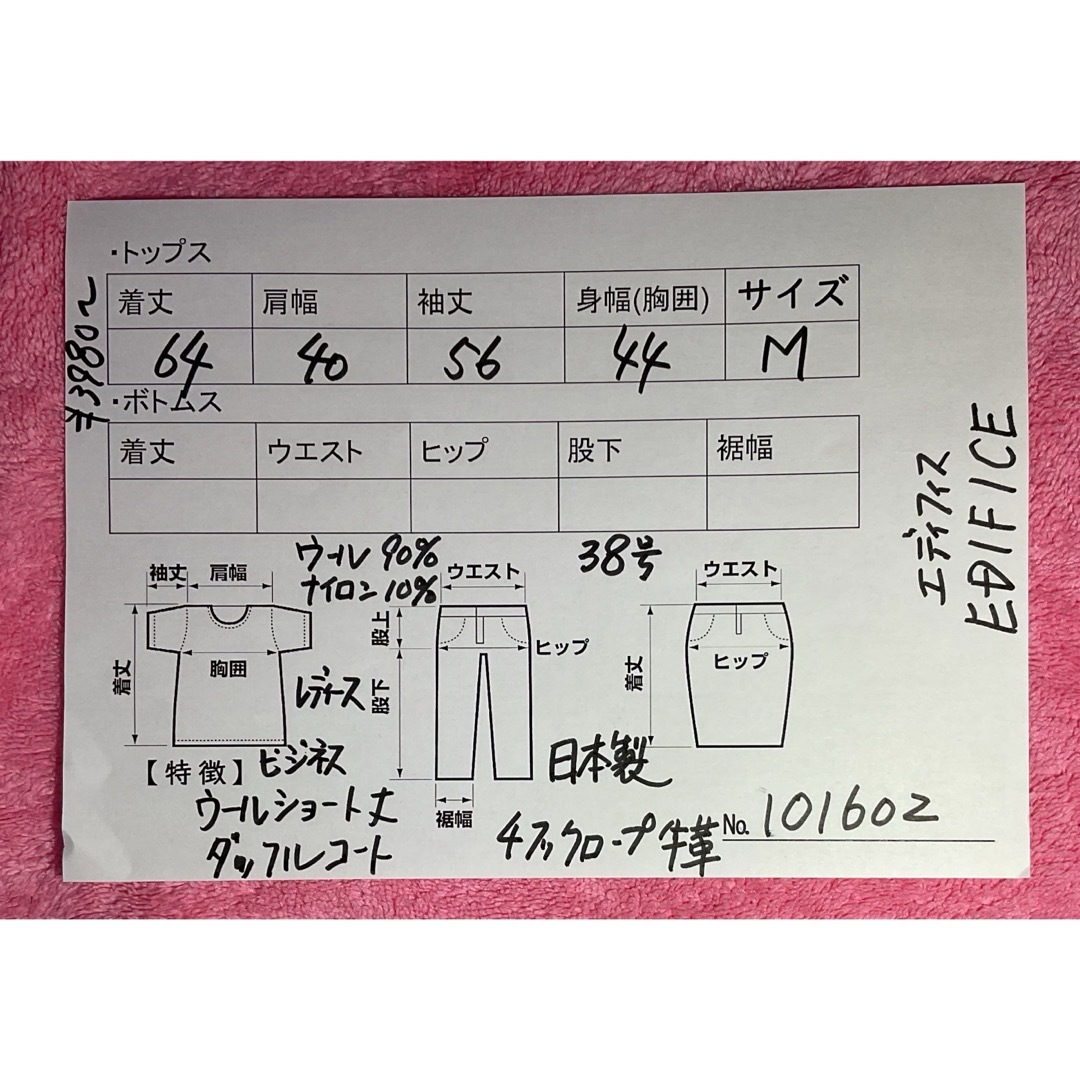 ・トップス
着丈 肩幅 袖丈 身幅(胸囲) サイズ
64 40 56 44 M
¥3980〜
・ボトムス
着丈 ウエスト ヒップ 股下 裾幅
エディフィス
EDIFICE
ウール 90%
ナイロン 10%
38号
袖丈 肩幅
胸囲
着丈
レディース
ウエスト
股上
ヒップ
股下
裾幅
ウエスト
ヒップ
着丈
【特徴】ビジネス
ウールショート丈
ダッフルコート
日本製
4フックロープ牛革
No. 101602